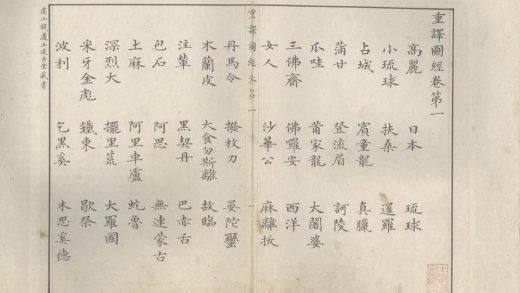 重譯圖經卷第一
高麗 日本 琉球
小琉球 扶桑 暹羅
占城 賓童龍 真臘
蒲甘 登流眉 訶陵
瓜哇 莆家龍 大闍婆
三佛齊 佛囉安 西洋
女人 沙華公 麻離拔
重譯圖經卷第一 一
丹馬令 撥枚力 晏陀蠻
木蘭皮 大食勿斯離 故臨
注輦 黑契丹 巴赤舌
包石 阿思 無連蒙古
土麻 阿里車盧 蛇魯
深烈大 擺里荒 大羅國
采牙金彪 鐵東 歇祭
波利 乞黑奚 木思奚德
虞山錢遵王述古堂藏書